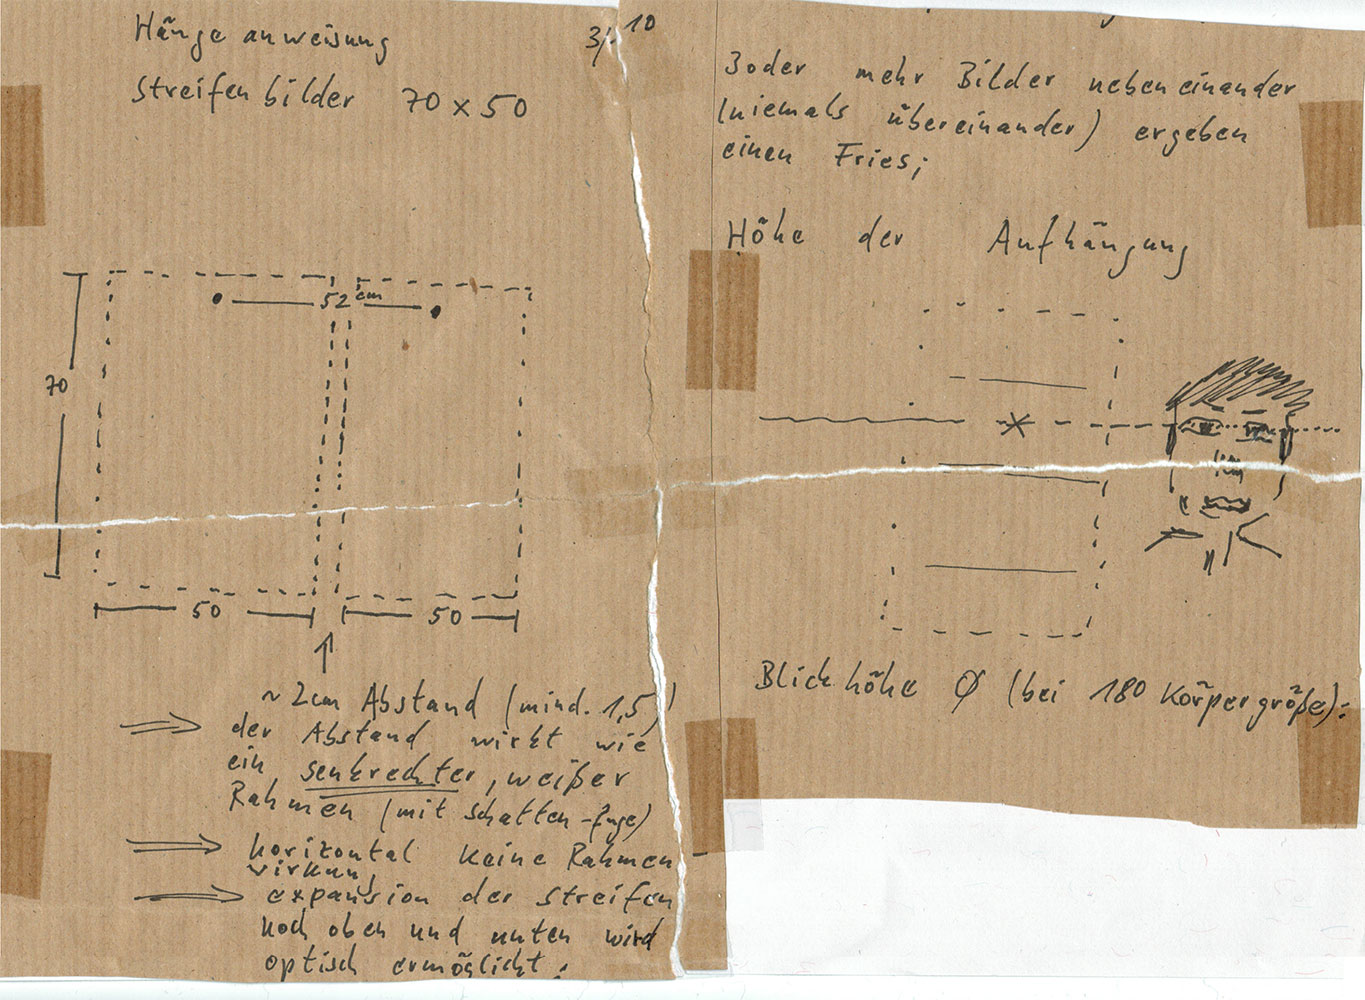 Hängeanweisung
Streifenbilder 70 x 50
3/10
52 cm
70
50
50
~ 2cm Abstand (mind. 1,5)
der Abstand wirkt wie
ein senkrechter, weißer
Rahmen (mit Schatten-fuge)
horizontal keine Rahmen-
wirkung
expansion der Streifen
noch oben und unten wird
optisch ermöglicht.
3 oder mehr Bilder nebeneinander
(niemals übereinander) ergeben
einen Fries;
Höhe der Aufhängung
Blickhöhe Ø (bei 180 Körpergröße):